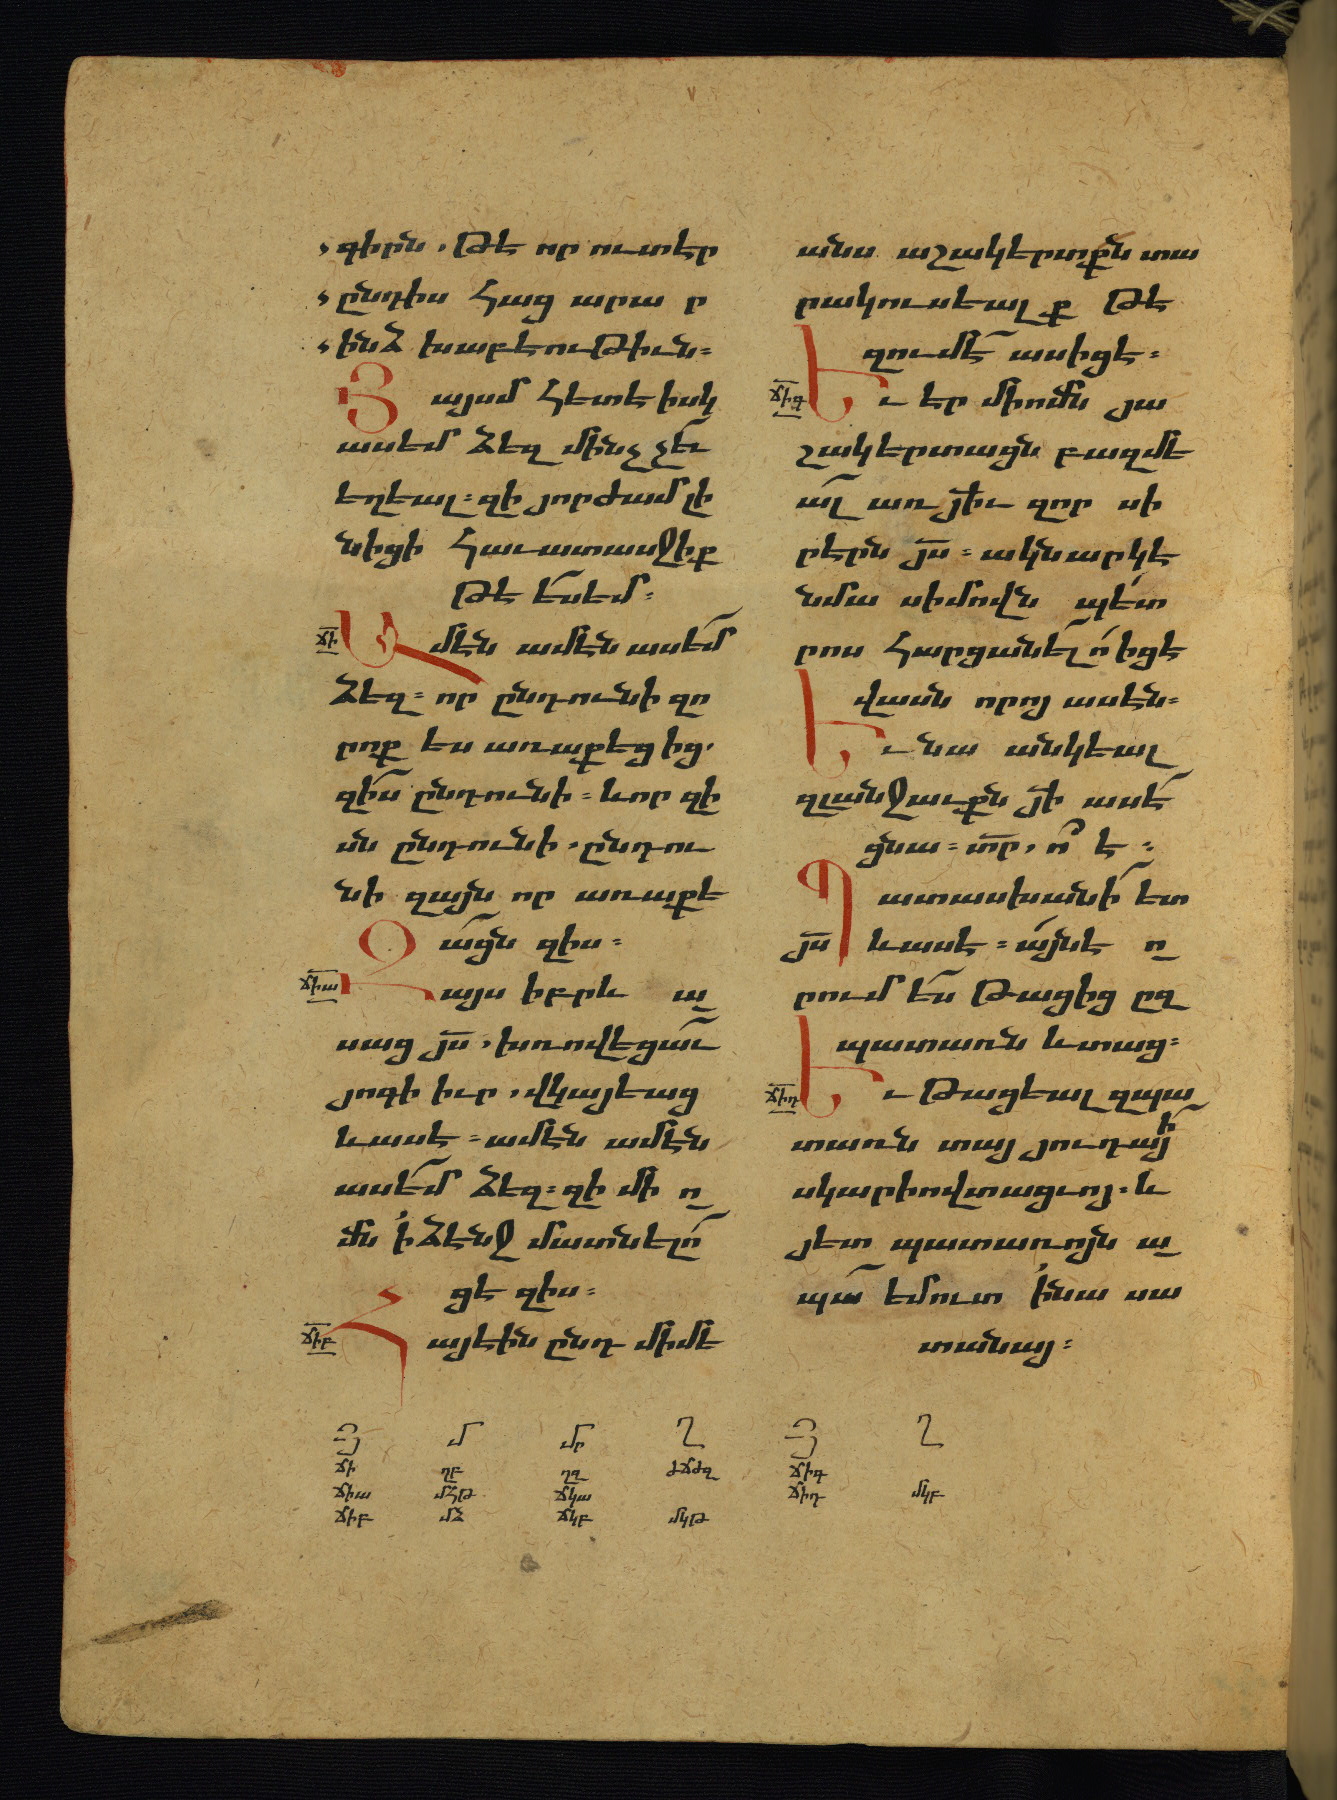 գիրն, թէ որ ուտէր
ընդիս հաց արար
ինձ խաբէութիւն։
Յայսմ հետէ իսկ
ասեմ ձեզ մինչչև
եղեալ։ զի յորժամ լի
նիցի հաւատասջիք
թէ ես եմ։
ճի
Ամէն ամէն ասեմ
ձեզ։ որ ընդունի զո
րոք ես առաքեցից,
զիս ընդունի։ և որ զի
սն ընդունի, ընդու
նի զայն որ առաքե
ացն զիս։
ճիա
Զայս իբրև ա
սաց յս, խռովեցաւ
յոգի իւր, վկայեաց
և ասէ։ ամէն ամէն
ասեմ ձեզ։ զի մի ո
մն ի ձէնջ մատնելո
ցէ զիս։
ճիբ
Հայէին ընդ միմե
անս աշակերտքն տա
րակուսեալ ք թէ
զումէ ասիցէ։
ճիգ
Եւ էր միումն յա
շակերտացն բազմե
ալ առ յի զոր սի
րէրն յս։ ակնարկէ
նմա սիմովն պետ
րոս հարցանել ո իցէ
վասն որոյ ասէն։
Եւ նա անկեալ
զլանջաւքն յի ասէ
ցնա։ տր, ո է։
Պատասխանի ետ
յս և ասէ։ այն է ո
րում ես թացից ըզ
պատառն և տաց։
ճիդ
Եւ թացեալ զպա
տառն տայ յուդայի
սկարիովտացւոյ. և
յետ պատառոյն ա
պա եմուտ ի նա սա
տանայ։
Յ մ մր Ղ Յ Ղ
ճի ղբ ղզ ժճժզ ճիգ
ճիա մհթ ճկա ճիդ մկբ
ճիբ մձ ճկբ մկթ